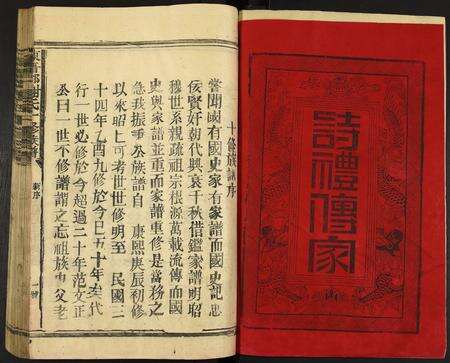 詩禮傳家
十修族譜序
嘗聞國有國史家有家譜而國史記忠
佞賢奸朝代興衰千秋借鑑家譜明昭
穆世系親疏祖宗根源萬載流傳而國
史與家譜並重而家譜重修是當務之
急我振公族譜自 康熙庚辰初修
以來昭昭可考世世修明至 民國三
十四年乙酉九修於今已五十年矣代
行一世必修於今超過二十年范文正
公曰一世不修譜謂之忘祖族中父老
新序